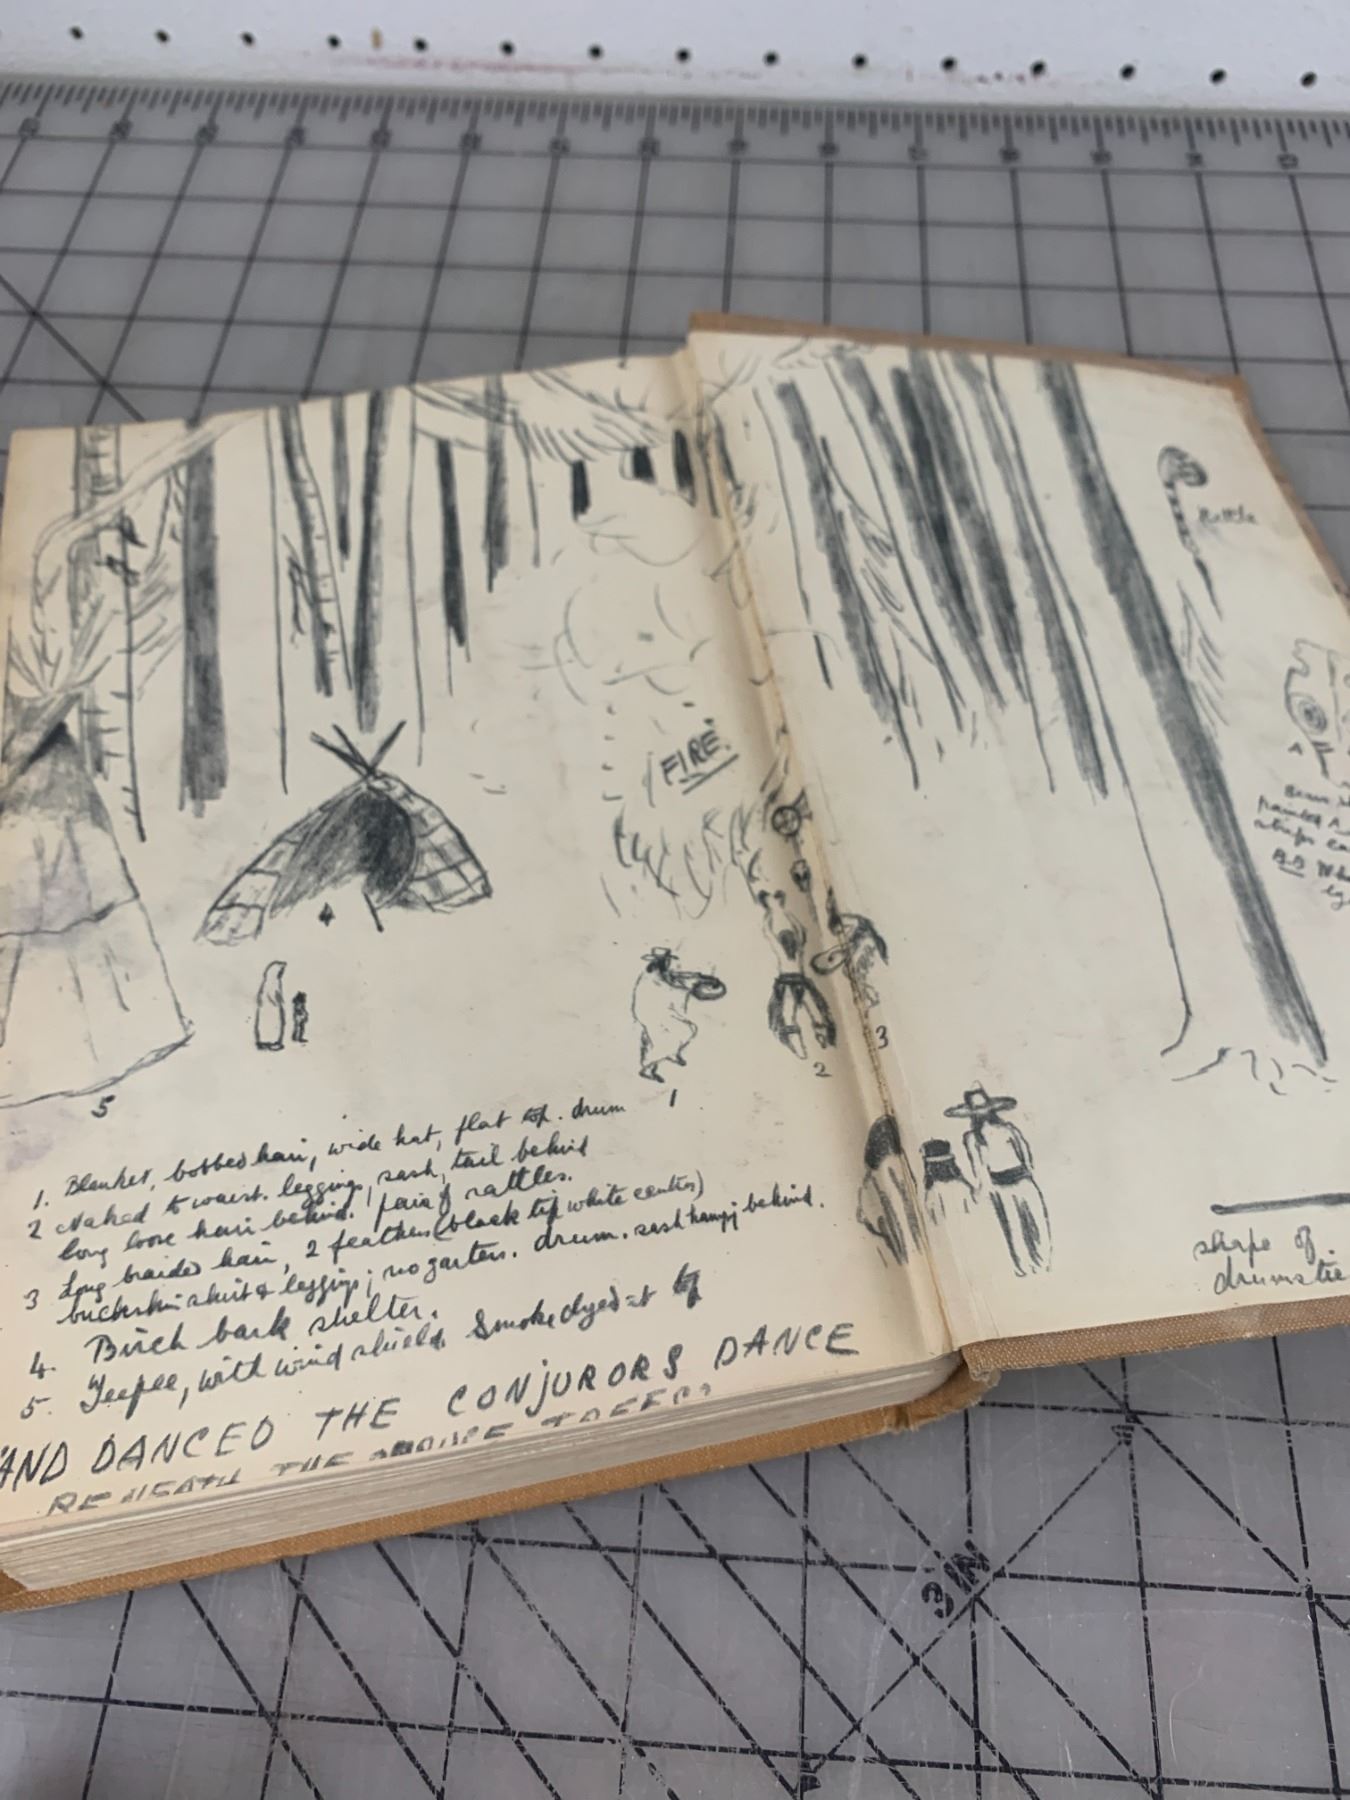 Rattle
FIRE.
4
5
1
2
3
1. Blanket, bobbed hair, wide hat, flat top. drum
2 Naked to waist. leggings, sash, tail behind
long loose hair behind. pair of rattles.
3 Long braided hair, 2 feathers (black tip white center)
buckskin shirt & leggings; no garters. drum. sash hangg behind.
4. Birch bark shelter.
5. Teepee, with wind shield. Smoke dyed at top
AND DANCED THE CONJURORS DANCE
BENEATH THE SPRUCE TREES?
A
painted
shape of
drumstic
3 IN